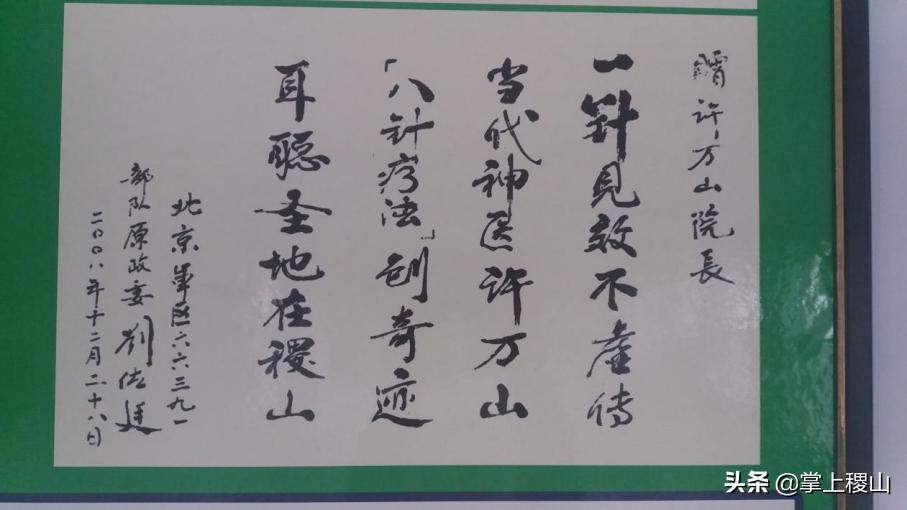 赠许万山院長
一針見效不虚传
当代神医许万山
「八针疗法」创奇迹
耳聪圣地在稷山
北京军区六六三九一
部队原政委刘佐廷
二〇〇八年十二月二十八日
头条 @掌上稷山